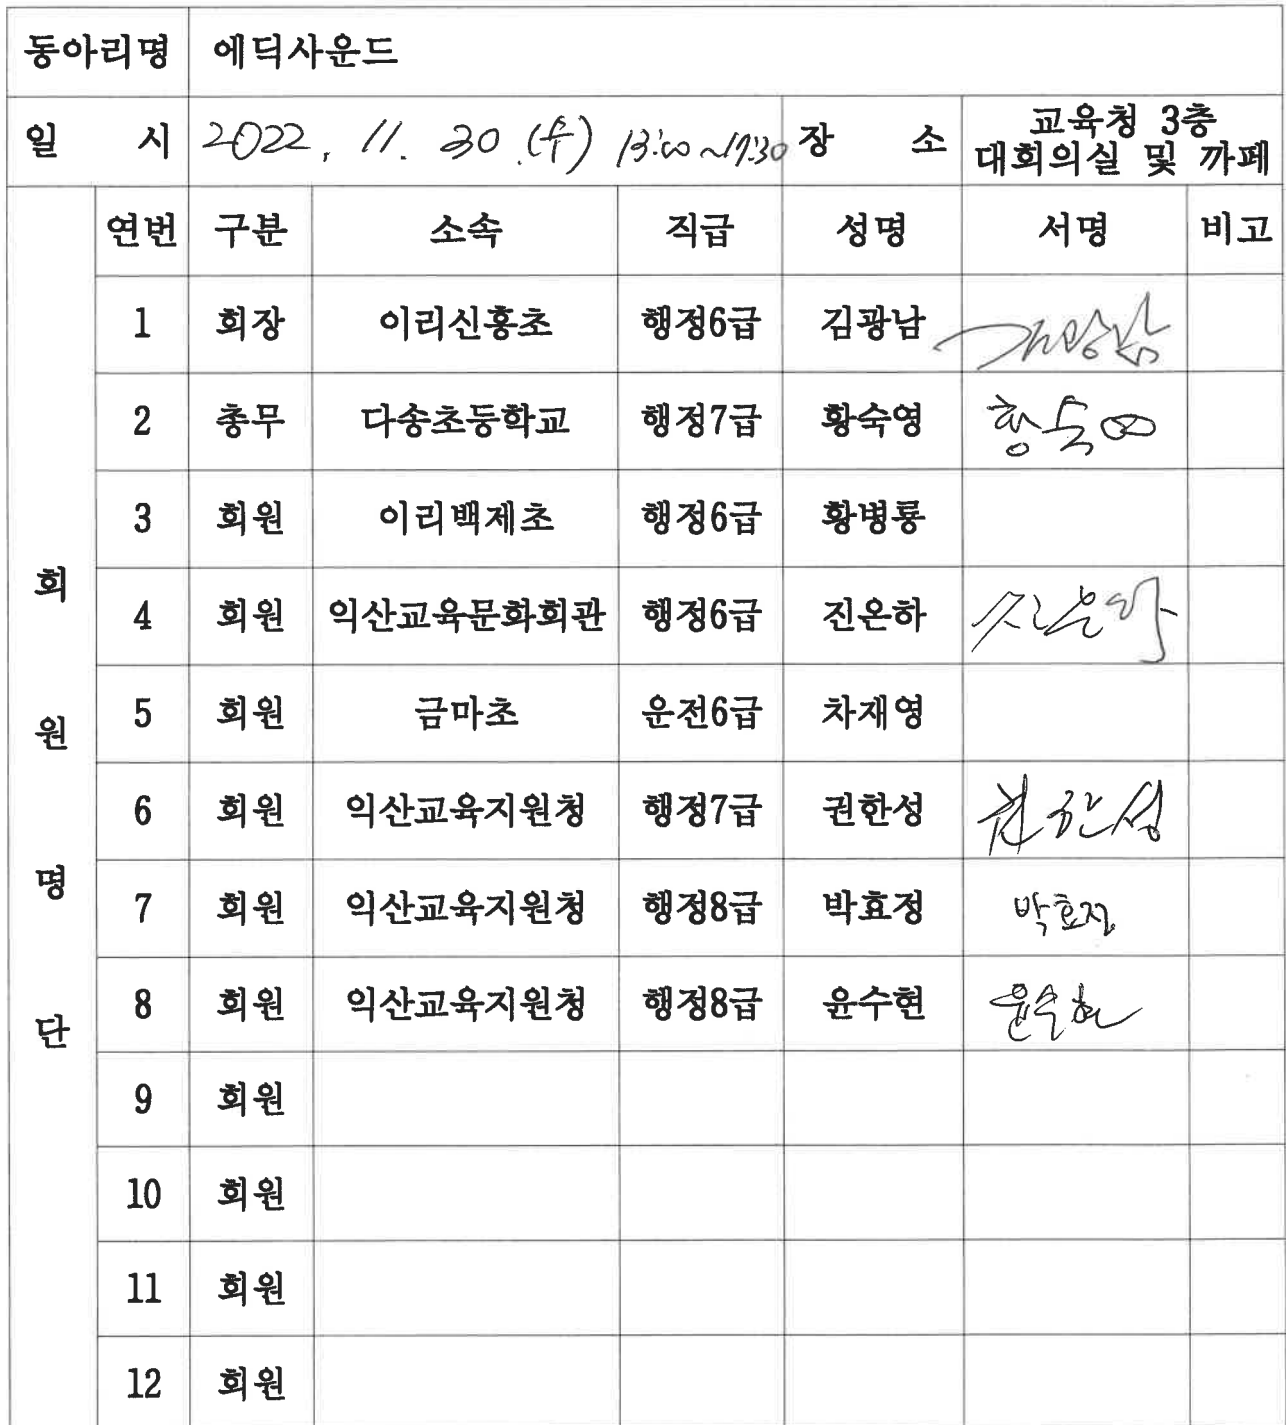 동아리명 에딕사운드
일 시 2022. 11. 30.(수) 장 소 교육청 3층
대회의실 및 까페
회원명단
연번 구분 소속 직급 성명 서명 비고
1 회장 이리신흥초 행정6급 김광남 김광남
2 총무 다송초등학교 행정7급 황숙영 황숙영
3 회원 이리백제초 행정6급 황병룡
4 회원 익산교육문화회관 행정6급 진은하 진은하
5 회원 금마초 운전6급 차재영
6 회원 익산교육지원청 행정7급 권한성 권한성
7 회원 익산교육지원청 행정8급 박효정 박효정
8 회원 익산교육지원청 행정8급 윤수현 윤수현
9 회원
10 회원
11 회원
12 회원